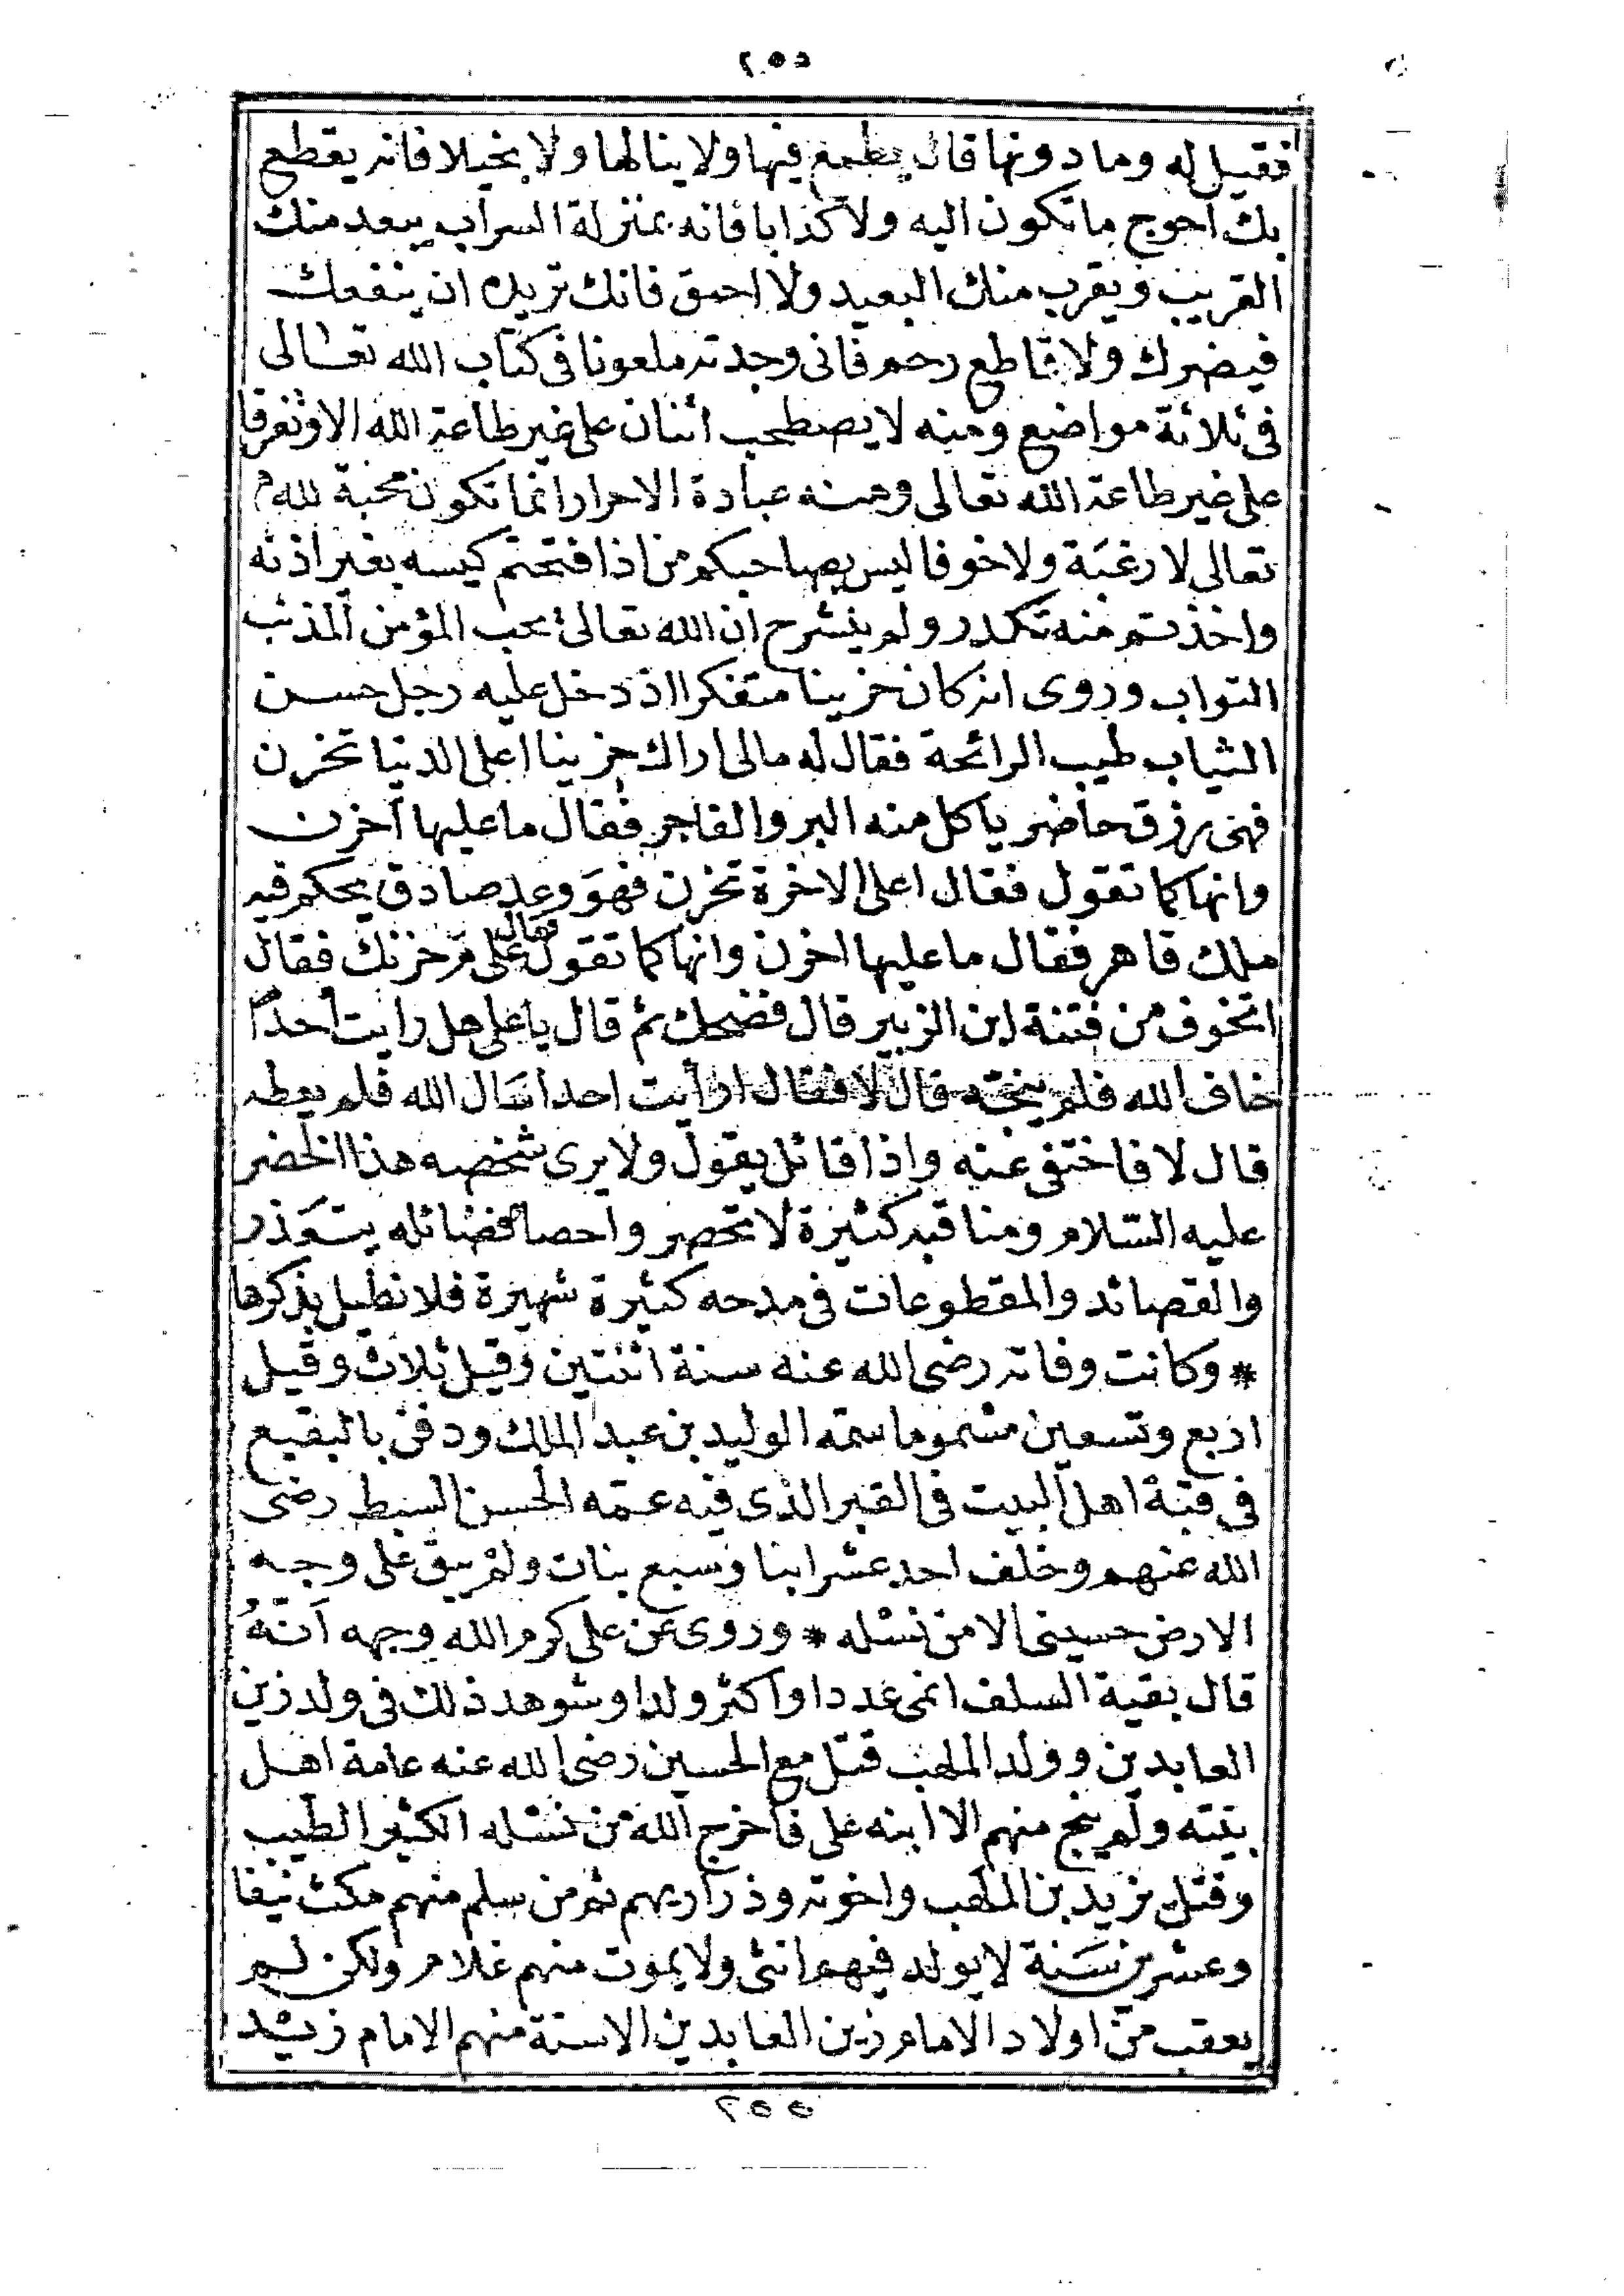 ٢٥٥
فقيل له وما دونها قال يطمع فيها ولا ينالها ولا بخيلا فانه يقطع
بك احوج ما تكون اليه ولا كذابا فانه بمنزلة السراب يبعد منك
القريب ويقرب منك البعيد ولا احمق فانك تريده ان ينفعك
فيضرك ولا قاطع رحم فانى وجدته ملعونا فى كتاب الله تعالى
فى ثلاثة مواضع ومنه لا يصطحب اثنان على غير طاعة الله الا وتفرقا
على غير طاعة الله تعالى ومنه عبادة الاحرار انما تكون محبة لله
تعالى لا رغبة ولا خوفا ليس بصاحبكم من اذا فتحتم كيسه بغير اذنه
واخذتم منه تكدر ولم ينشرح ان الله تعالى يحب المؤمن المذنب
التواب وروى انه كان حزينا متفكرا اذ دخل عليه رجل حسن
الثياب طيب الرائحة فقال له مالى اراك حزينا اعلى الدنيا تحزن
فهى رزق حاضر ياكل منه البر والفاجر فقال ما عليها احزن
وانها كما تقول فقال اعلى الاخرة تحزن فهو وعد صادق يحكم فيه
ملك قاهر فقال ما عليها احزن وانها كما تقول فقال على م حزنك فقال
اتخوف من فتنة ابن الزبير قال فضحك ثم قال يا على هل رايت احدا
خاف الله فلم ينجه قال لا فقال ارأيت احدا سال الله فلم يعطه
قال لا فاختفى عنه واذا قائل يقول ولا يرى شخصه هذا الخضر
عليه السلام ومناقبه كثيرة لا تحصر واحصا فضائله يتعذر
والقصائد والمقطوعات فى مدحه كثيرة شهيرة فلا نطيل بذكرها
* وكانت وفاته رضى الله عنه سنة اثنتين وقيل ثلاث وقيل
اربع وتسعين مسموما سمه الوليد بن عبد الملك ودفن بالبقيع
فى قبة اهل البيت فى القبر الذى فيه عمه الحسن السبط رضى
الله عنهم وخلف احد عشر ابنا وسبع بنات ولم يبق على وجه
الارض حسينى الا من نسله * وروى عن على كرم الله وجهه انه
قال بقية السلف انمى عددا واكثر ولدا وشوهد ذلك فى ولد زين
العابدين وولد المهلب قتل مع الحسين رضى الله عنه عامة اهل
بيته ولم ينج منهم الا ابنه على فاخرج الله من نسله الكثير الطيب
وقتل يزيد بن المهلب واخوته وذراريهم ثم من سلم منهم مكث نيفا
وعشرين سنة لا يولد فيهم انثى ولا يموت منهم غلام ولكن لم
يعقب من اولاد الامام زين العابدين الا ستة منهم الامام زيد
٢٥٥